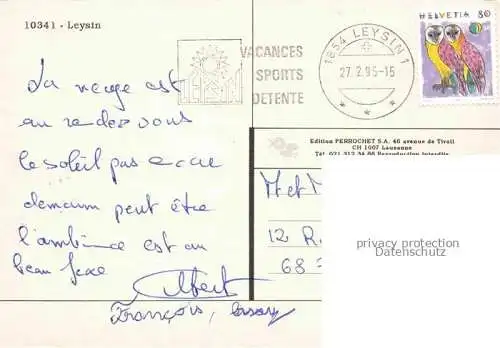 10341 - Leysin
VACANCES
SPORTS
DETENTE
1854 LEYSIN 1
27.2.95-15
HELVETIA 80
Edition PERROCHET S.A. 46 avenue de Tivoli
CH 1007 Lausanne
Tél. 021 312 34 86 Reproduction interdite
La neige est
au rendez vous
le soleil pas encore
demain peut être
l'ambiance est au
beau fixe
Albert
François,
M et M
12 R
68
privacy protection
Datenschutz